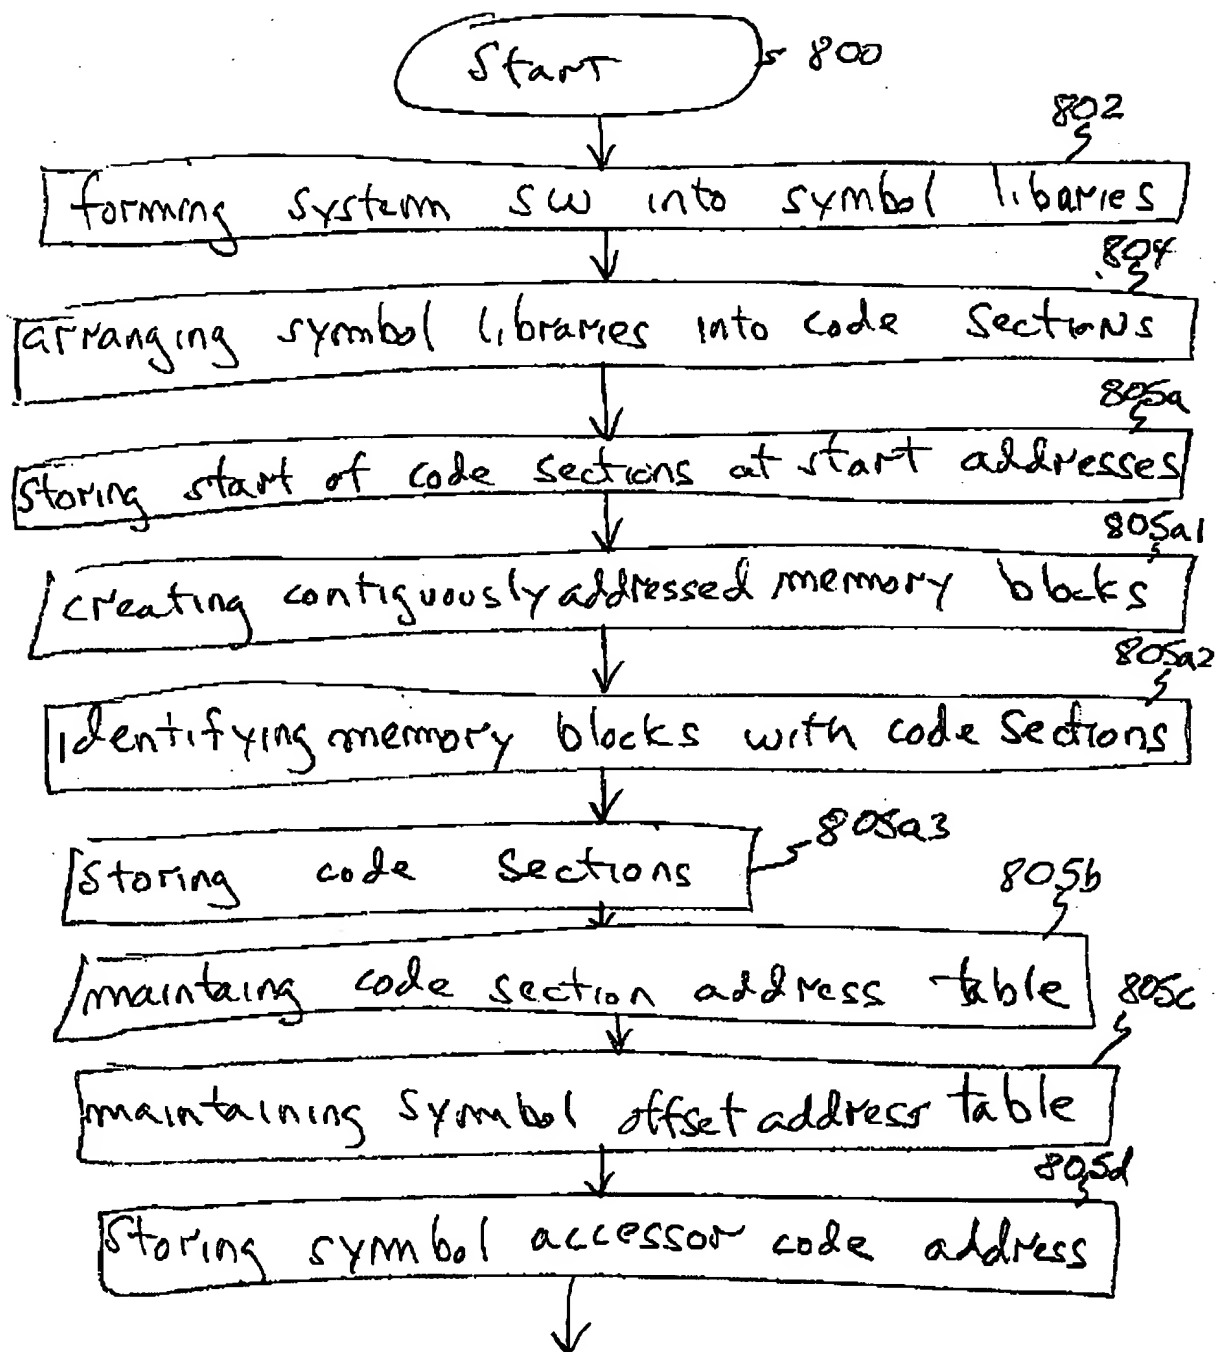 Start 800
802
forming system SW into symbol libaries
804
arranging symbol libraries into code sections
805a
storing start of code sections at start addresses
805a1
creating contiguously addressed memory blocks
805a2
identifying memory blocks with code sections
805a3
storing code sections
805b
maintaing code section address table
805c
maintaining symbol offset address table
805d
storing symbol accessor code address